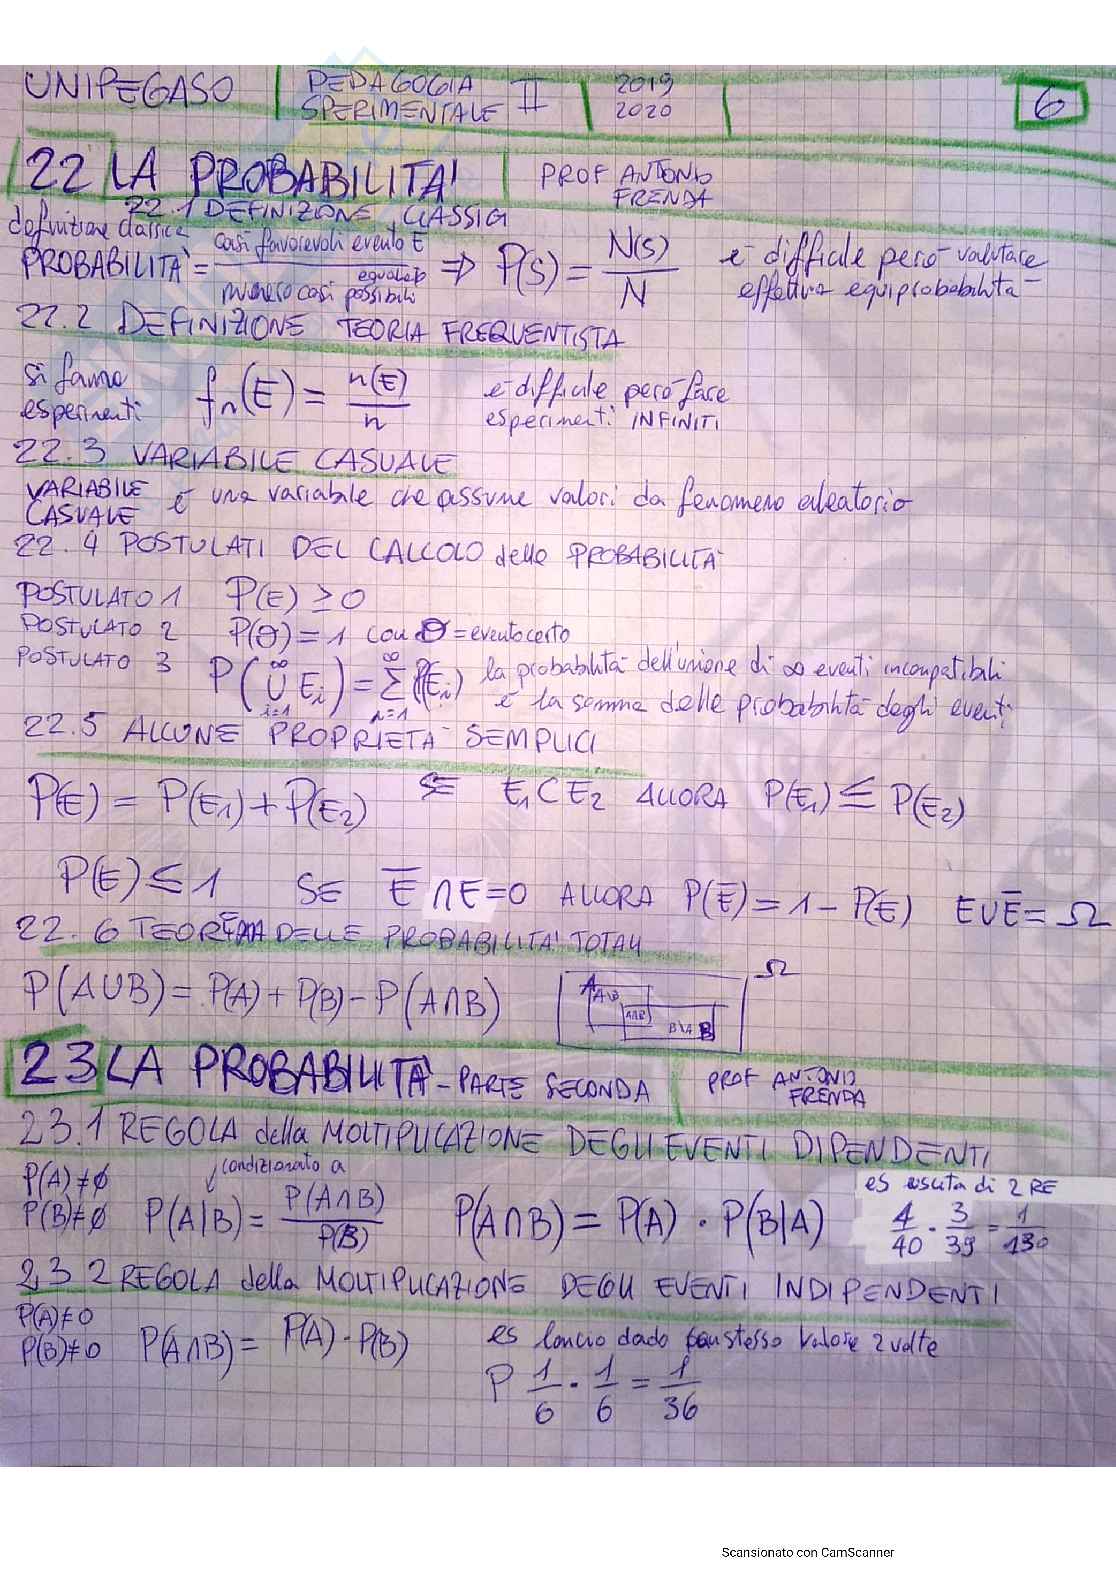 UNIPEGASO PEDAGOGIA SPERIMENTALE II 2019 2020 6
22 LA PROBABILITA' PROF ANTONIO FRENDA
22.1 DEFINIZIONE CLASSICA
definizione classica
PROBABILITA' = casi favorevoli evento E / numero casi possibili equalp ⇒ P(S) = N(S) / N è difficile però valutare effettiva equiprobabilità
22.2 DEFINIZIONE TEORIA FREQUENTISTA
si fanno esperimenti fn(E) = n(E) / n è difficile però fare esperimenti INFINITI
22.3 VARIABILE CASUALE
VARIABILE CASUALE è una variabile che assume valori da fenomeno aleatorio
22.4 POSTULATI DEL CALCOLO delle PROBABILITA'
POSTULATO 1 P(E) ≥ 0
POSTULATO 2 P(θ) = 1 con θ = evento certo
POSTULATO 3 P(∪ i=1 ∞ Ei) = Σ i=1 ∞ P(Ei) la probabilità dell'unione di ∞ eventi incompatibili
è la somma delle probabilità degli eventi
22.5 ALCUNE PROPRIETA' SEMPLICI
P(E) = P(E1) + P(E2) SE E1 ⊂ E2 ALLORA P(E1) ≤ P(E2)
P(E) ≤ 1 SE E̅ ∩ E = 0 ALLORA P(E̅) = 1 - P(E) E ∪ E̅ = Ω
22.6 TEOREMA DELLE PROBABILITA' TOTALI
P(A∪B) = P(A) + P(B) - P(A∩B) A A\B A∩B B\A B Ω
23 LA PROBABILITA' - PARTE SECONDA PROF ANTONIO FRENDA
23.1 REGOLA della MOLTIPLICAZIONE DEGLI EVENTI DIPENDENTI
condizionato a
es uscita di 2 RE
P(A) ≠ 0
P(B) ≠ 0 P(A|B) = P(A∩B) / P(B) P(A∩B) = P(A) · P(B|A) 4/40 · 3/39 = 1/130
23.2 REGOLA della MOLTIPLICAZIONE DEGLI EVENTI INDIPENDENTI
P(A) ≠ 0
P(B) ≠ 0 P(A∩B) = P(A) · P(B) es lancio dado con stesso valore 2 volte
P 1/6 · 1/6 = 1/36
Scansionato con CamScanner